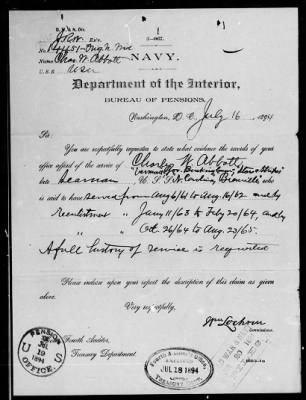 3—067.
No. 14451
Name Chas. W. Abbott
NAVY.
Department of the Interior,
BUREAU OF PENSIONS,
Washington, D. C., July 16, 1894
Sir:
You are respectfully requested to state what evidence the records of your
office afford of the service of Charles W. Abbott
late Seaman, U. S. S.
said to have served from Aug 6/61 to Aug 16/62 and by
reenlistment " Jany 11/63 to Feby 20/64, and by
" " Oct. 26/64 to Aug. 23/65.
A full history of service is requested
Please indorse upon your report the description of this claim as given
above.
Very respectfully,
Wm Lochren
Commissioner.
Fourth Auditor,
Treasury Department.
PENSION OFFICE. U S
JUL 19 1894
JUL 18 1894